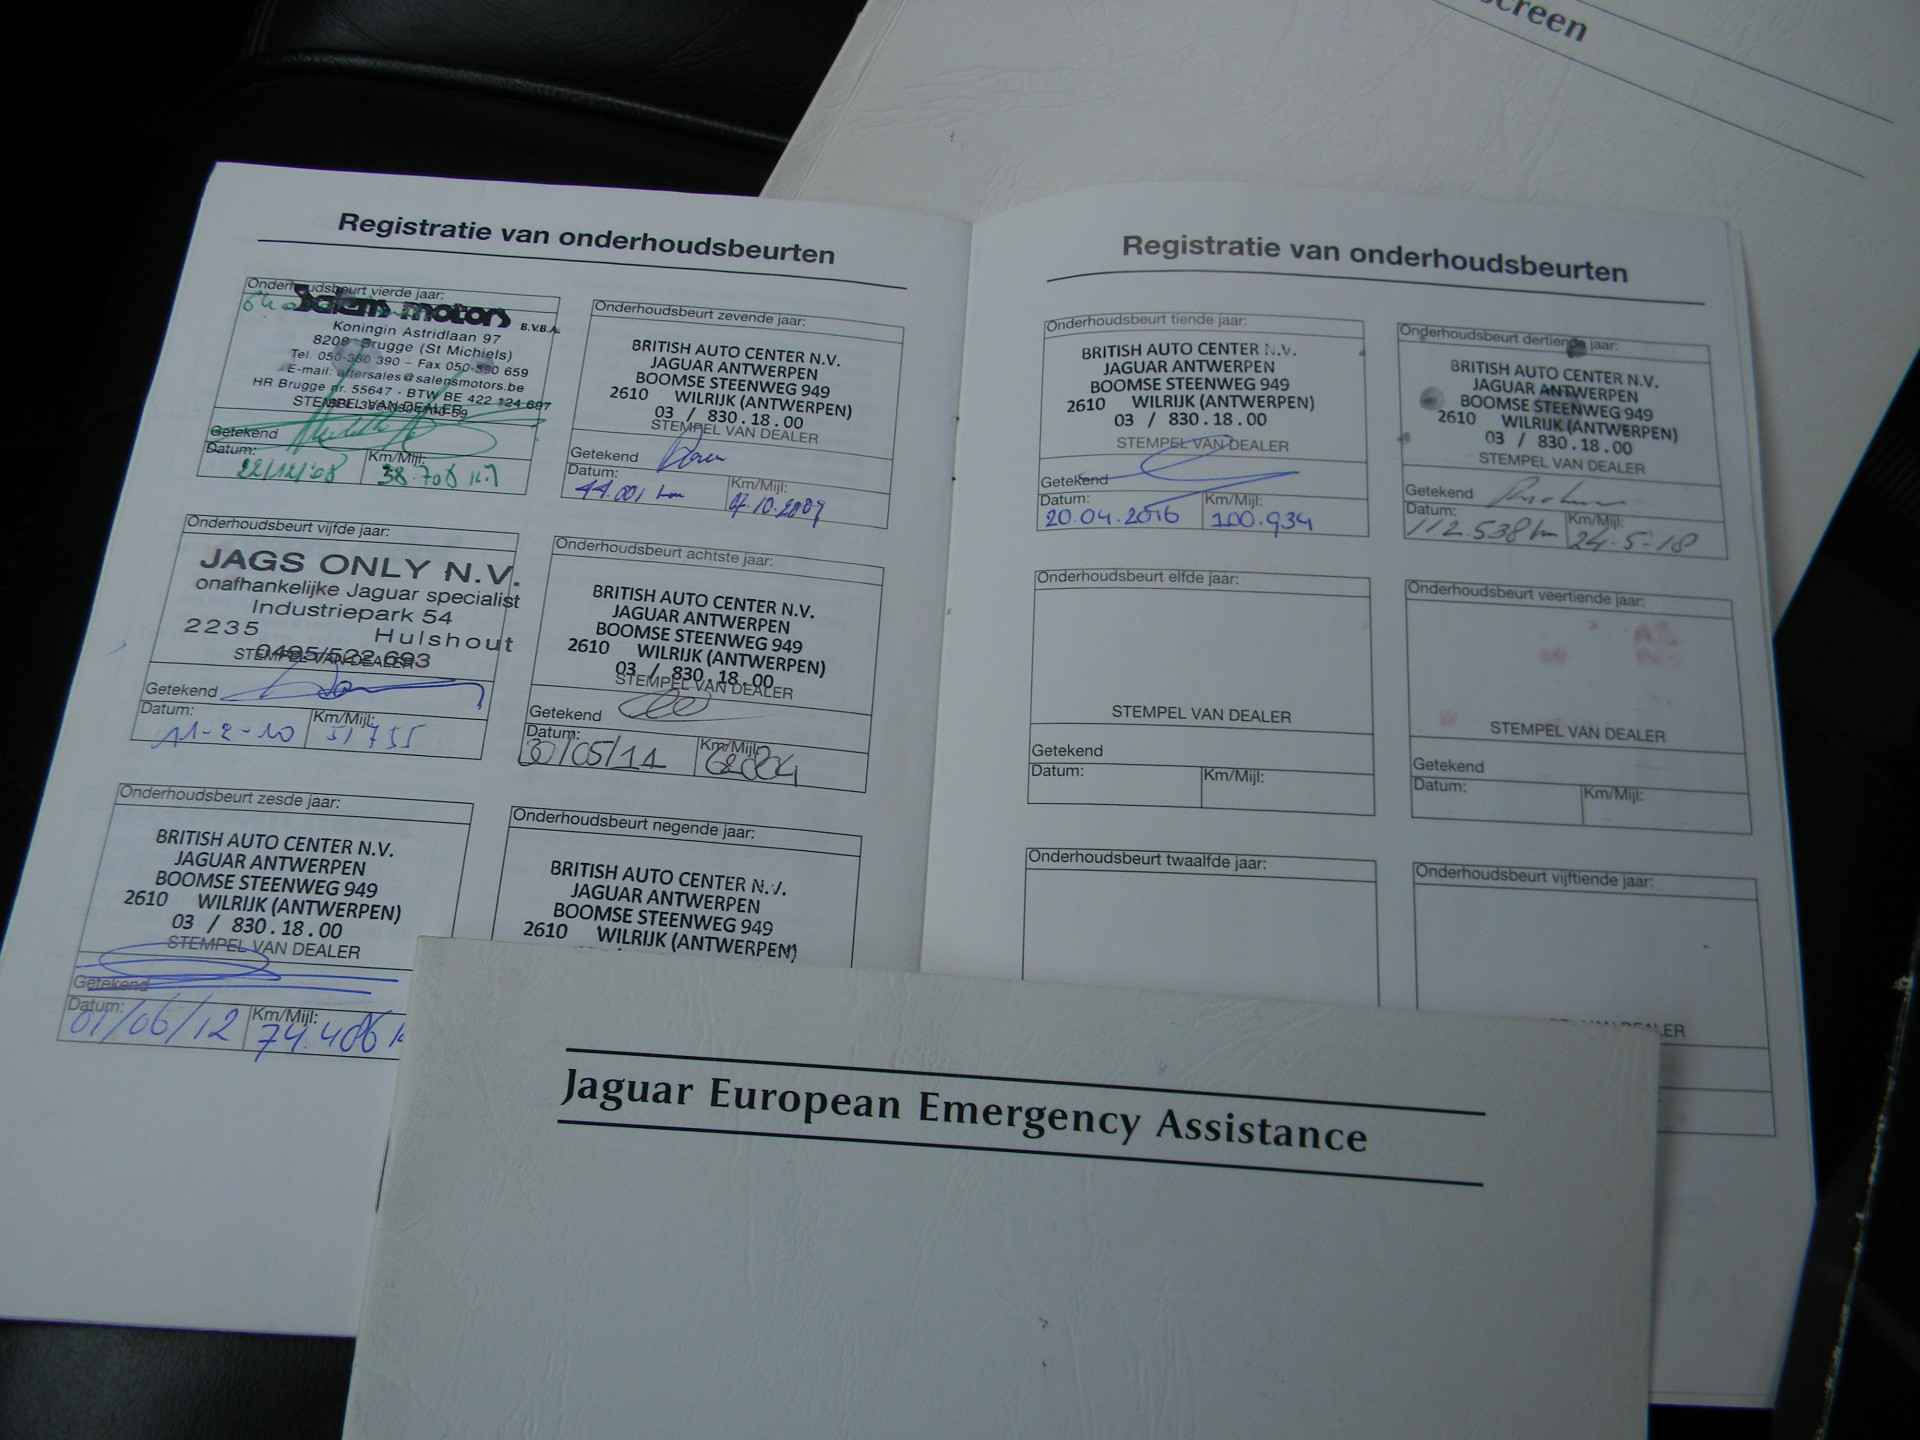 creen
Registratie van onderhoudsbeurten
Onderhoudsbeurt vierde jaar:
Salens motors B.V.B.A.
Koningin Astridlaan 97
8200 Brugge (St Michiels)
Tel. 050-380 390 - Fax 050-390 659
E-mail: aftersales@salensmotors.be
HR Brugge nr. 55647 - BTW BE 422 124 687
STEMPEL VAN DEALER
Getekend
Datum: Km/Mijl:
22/12/08 38.708 km
Onderhoudsbeurt vijfde jaar:
JAGS ONLY N.V.
onafhankelijke Jaguar specialist
Industriepark 54
2235 Hulshout
0495/522 693
STEMPEL VAN DEALER
Getekend
Datum: Km/Mijl:
11-2-10 51755
Onderhoudsbeurt zesde jaar:
BRITISH AUTO CENTER N.V.
JAGUAR ANTWERPEN
BOOMSE STEENWEG 949
2610 WILRIJK (ANTWERPEN)
03 / 830.18.00
STEMPEL VAN DEALER
Getekend
Datum: Km/Mijl:
01/06/12 74.406
Onderhoudsbeurt zevende jaar:
BRITISH AUTO CENTER N.V.
JAGUAR ANTWERPEN
BOOMSE STEENWEG 949
2610 WILRIJK (ANTWERPEN)
03 / 830.18.00
STEMPEL VAN DEALER
Getekend
Datum: Km/Mijl:
44.001 km .10.2009
Onderhoudsbeurt achtste jaar:
BRITISH AUTO CENTER N.V.
JAGUAR ANTWERPEN
BOOMSE STEENWEG 949
2610 WILRIJK (ANTWERPEN)
03 / 830.18.00
STEMPEL VAN DEALER
Getekend
Datum: Km/Mijl:
30/05/11
Onderhoudsbeurt negende jaar:
BRITISH AUTO CENTER N.V.
JAGUAR ANTWERPEN
BOOMSE STEENWEG 949
2610 WILRIJK (ANTWERPEN)
Registratie van onderhoudsbeurten
Onderhoudsbeurt tiende jaar:
BRITISH AUTO CENTER N.V.
JAGUAR ANTWERPEN
BOOMSE STEENWEG 949
2610 WILRIJK (ANTWERPEN)
03 / 830.18.00
STEMPEL VAN DEALER
Getekend
Datum: Km/Mijl:
20.04.2016 100.934
Onderhoudsbeurt elfde jaar:
STEMPEL VAN DEALER
Getekend
Datum: Km/Mijl:
Onderhoudsbeurt twaalfde jaar:
Onderhoudsbeurt dertiende jaar:
BRITISH AUTO CENTER N.V.
JAGUAR ANTWERPEN
BOOMSE STEENWEG 949
2610 WILRIJK (ANTWERPEN)
03 / 830.18.00
STEMPEL VAN DEALER
Getekend
Datum: Km/Mijl:
112.538 km 24-5-18
Onderhoudsbeurt veertiende jaar:
STEMPEL VAN DEALER
Getekend
Datum: Km/Mijl:
Onderhoudsbeurt vijftiende jaar:
DEALER
Jaguar European Emergency Assistance